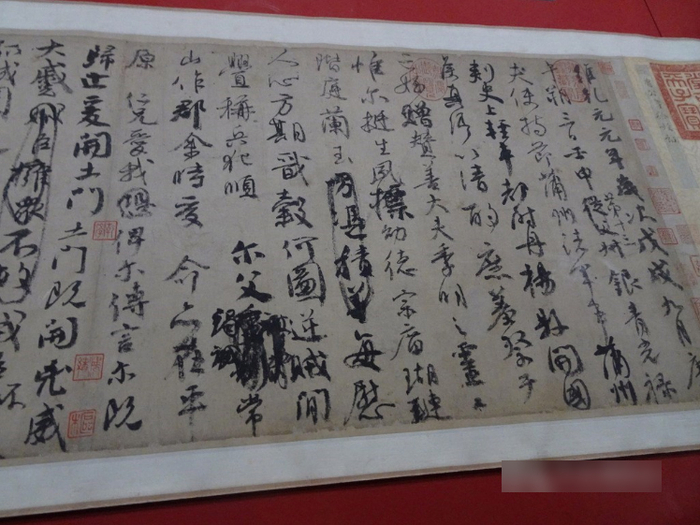 維乾元元年歲次戊戌九月庚
午朔三日壬申從父第十三叔銀青光祿
夫使持節蒲州諸軍事蒲州
刺史上輕車都尉丹楊縣開國
侯真卿以清酌庶羞祭于
亡姪贈贊善大夫季明之靈曰
惟爾挺生夙標幼德宗廟瑚璉
階庭蘭玉方憑積善每慰
人心方期戩穀何圖逆賊閒
釁稱兵犯順爾父竭誠常
山作郡余時受命亦在平
原仁兄愛我恐俾爾傳言爾既
歸止爰開土門土門既開凶威
大蹙賊臣擁衆不救